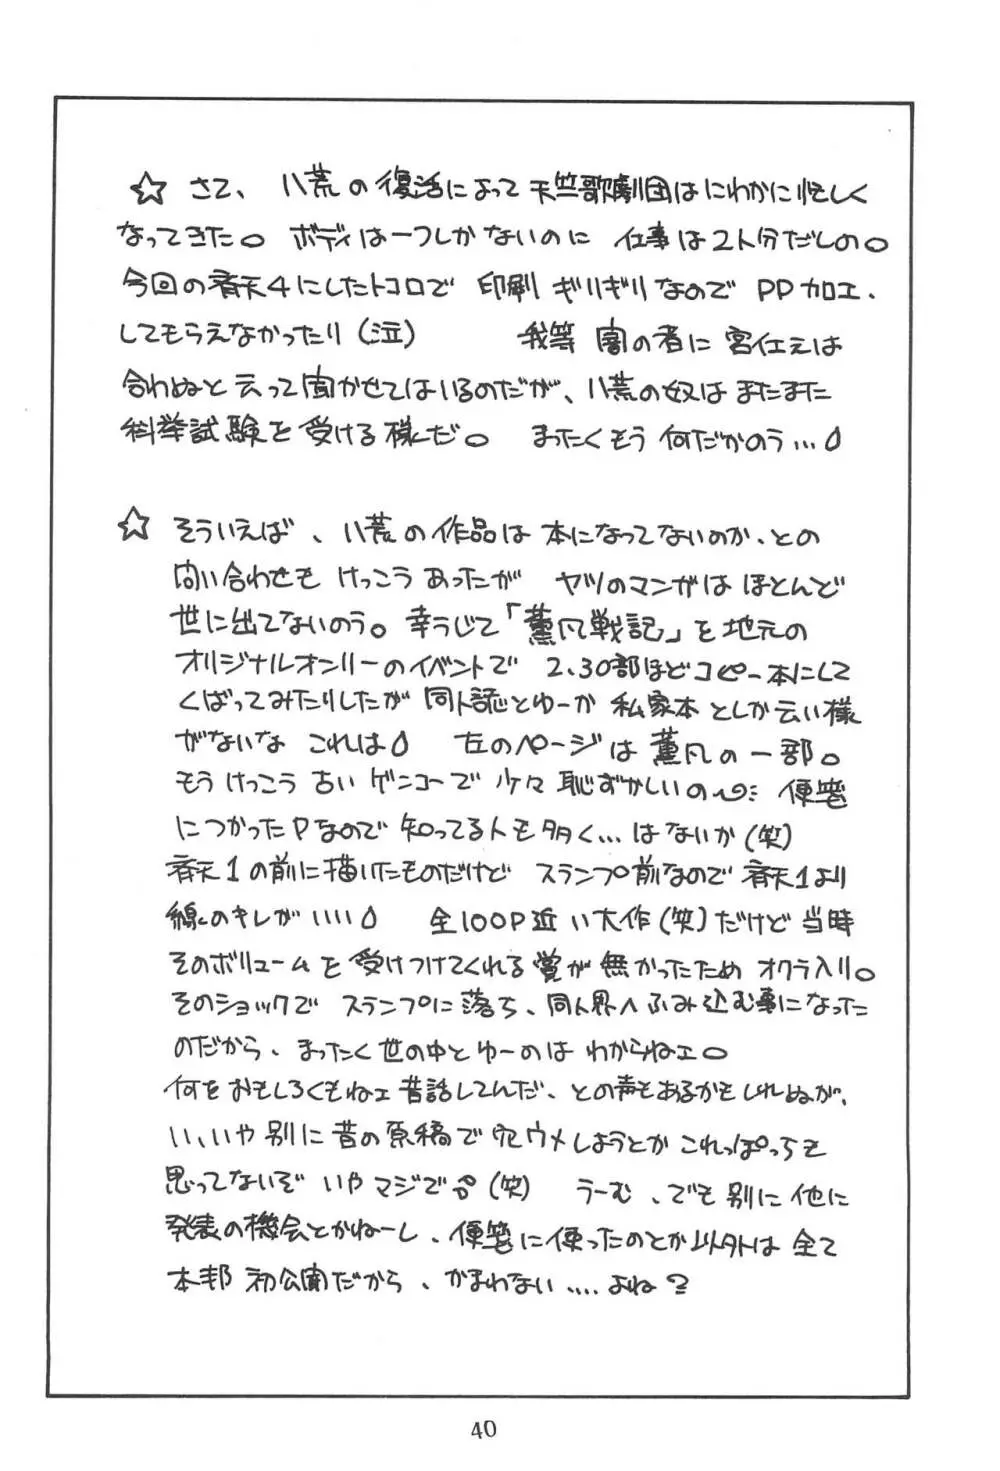 ☆ さて、八荒の復活によって天竺歌劇団はにわかに忙しく
なってきた。ボディは一つしかないのに 仕事は2人分だしの。
今回の斉天4にしたトコロで 印刷ギリギリなので PP加工、
してもらえなかったり(泣) 我等 闇の者に 宮仕えは
合わぬと云って聞かせてはいるのだが、八荒の奴は またまた
科挙試験を受ける様だ。 まったくもう 何だかのう…
☆ そういえば、八荒の作品は 本になってないのか、との
問い合わせも けっこう あったが ヤツのマンガは ほとんど
世に出てないのう。幸うじて「薫凡戦記」を地元の
オリジナルオンリーのイベントで 2、30部ほどコピー本にして
くばってみたりしたが 同人誌とゆーか 私家本 としか云い様
がないな これは 左のページは 薫凡の一部。
もう けっこう 古い ゲンコーで 少々 恥ずかしいの〜 便箋
につかったPなので 知ってる人も 多く…はないか(笑)
斉天1の前に描いたものだけど スランプ前なので 斉天1より
線のキレがいいい 全100P近い大作(笑)だけど 当時
そのボリュームを 受けつけてくれる賞が 無かったため オクラ入り。
そのショックで スランプに落ち、同人界へふみ込む事になった
のだから、まったく 世の中とゆーのは わからねェ。
何をおもしろくもねェ昔話してんだ、との声もあるかもしれぬが、
い、いや 別に 昔の原稿で 穴ウメしようとか これっぽっちも
思ってないぞ いや マジで(笑) うーむ、でも 別に 他に
発表の機会とかねーし、便箋に使ったのとか以外は 全て
本邦 初公開だから、かまわない….よね?
40